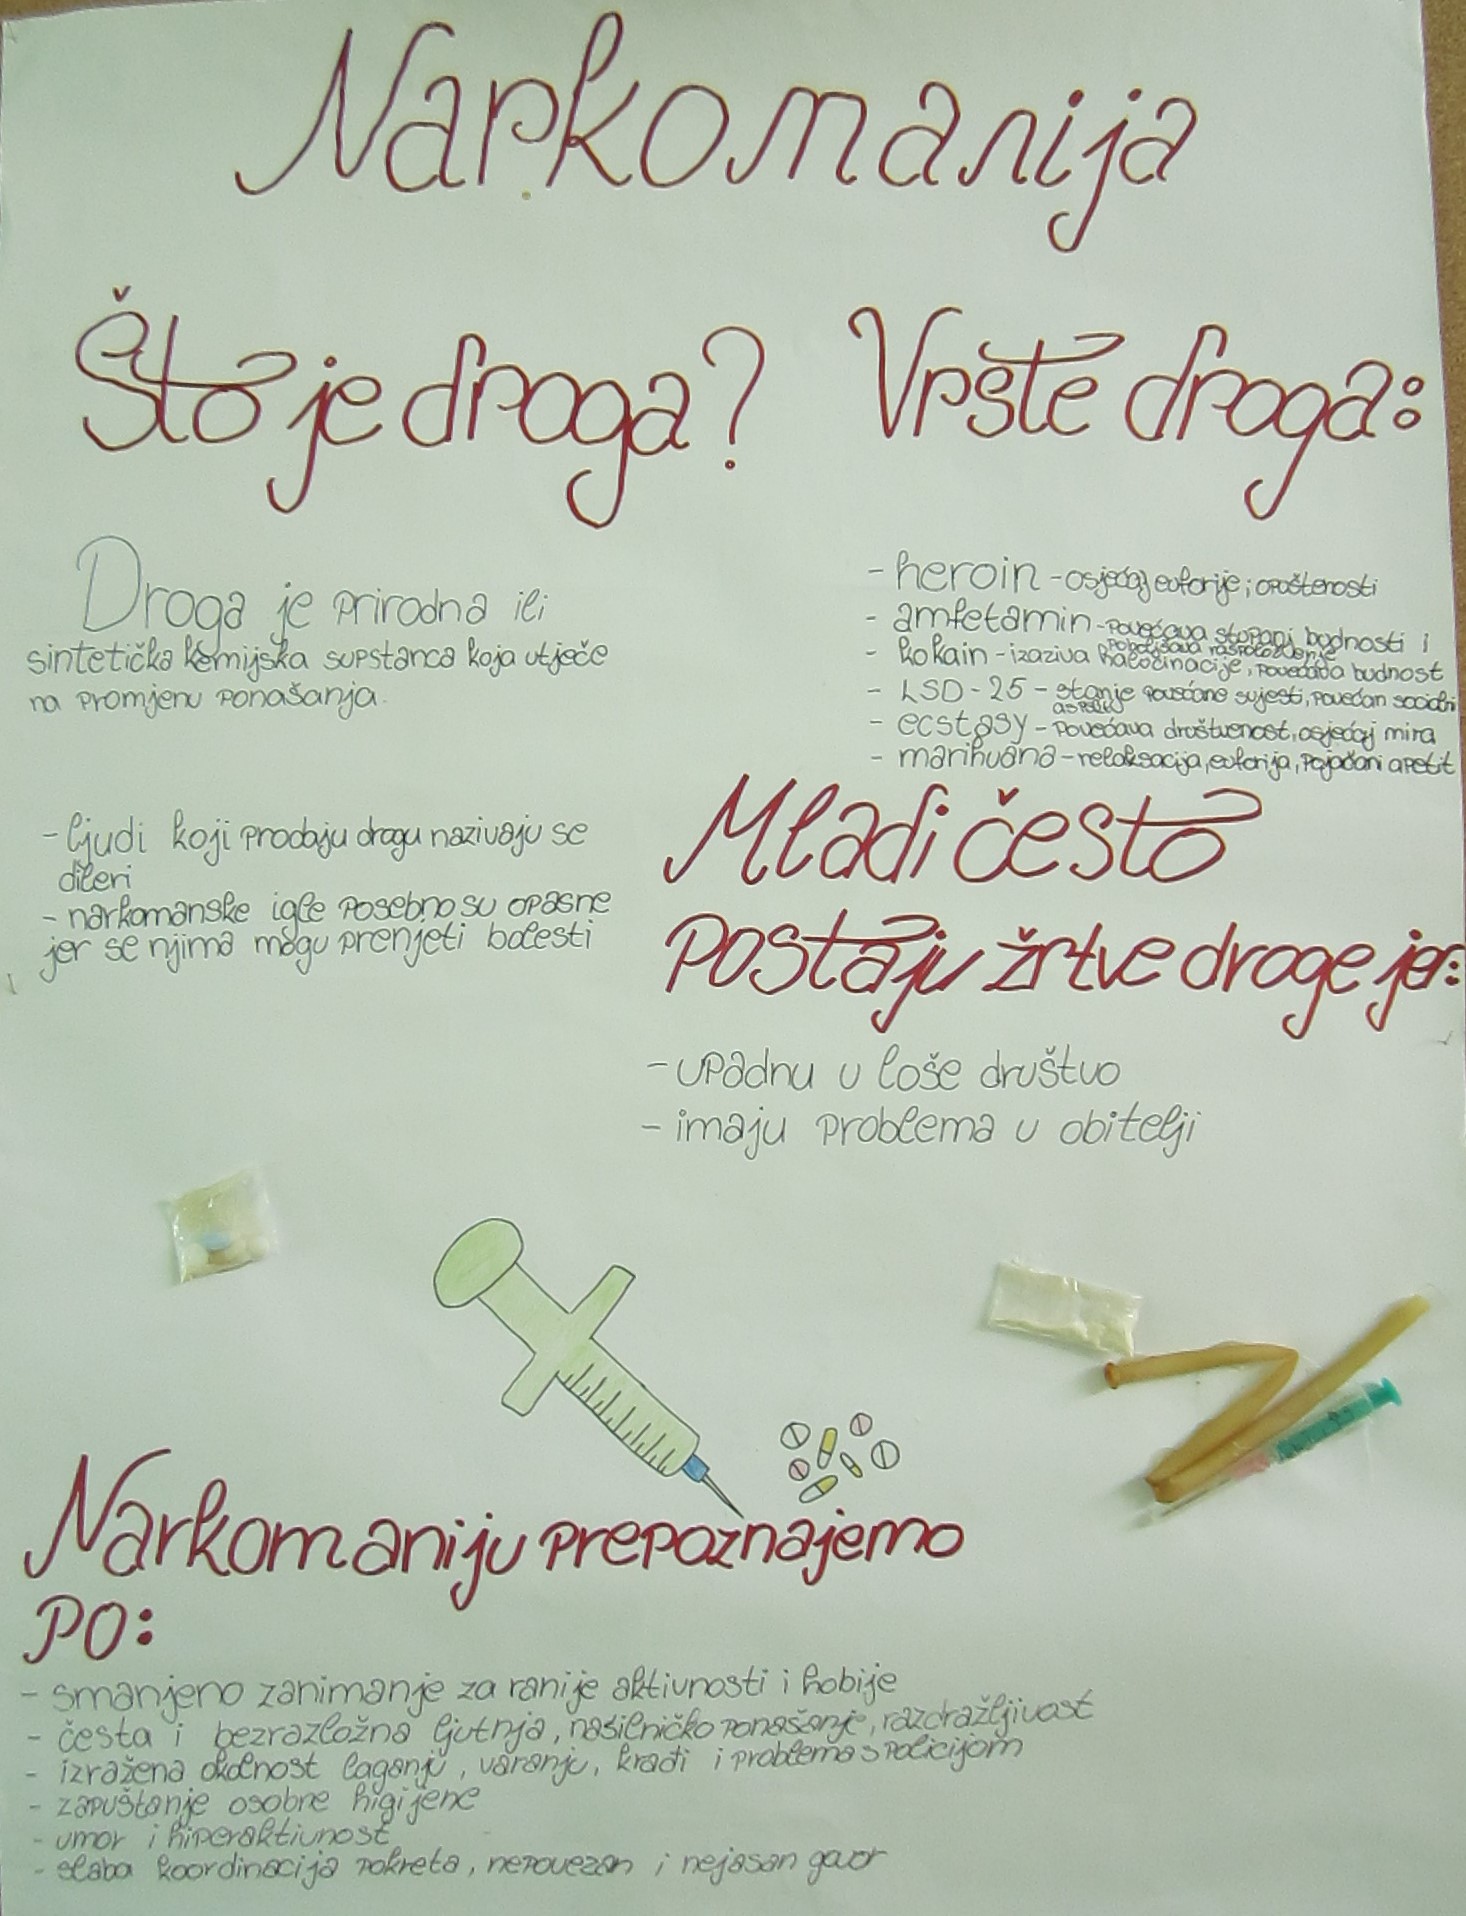 Narkomanija
Što je droga?
Droga je prirodna ili
sintetička kemijska supstanca koja utječe
na promjenu ponašanja.
- ljudi koji prodaju drogu nazivaju se
dileri
- narkomanske igle posebno su opasne
jer se njima mogu prenjeti bolesti
Vrste droga:
- heroin - osjećaj euforije i opuštenosti
- amfetamin - povećava stupanj budnosti i
poboljšava raspoloženje
- kokain - izaziva halocinacije, povećava budnost
- LSD-25 - stanje svijesti, povećan socialni
aspekt
- ecstasy - povećava društvenost, osjećaj mira
- marihuana - relaksacija, euforija, pojačani apetit
Mladi često
postaju žrtve droge jer:
- upadnu u loše društvo
- imaju problema u obitelji
Narkomaniju prepoznajemo
po:
- smanjeno zanimanje za ranije aktivnosti i hobije
- česta i bezrazložna ljutnja, nasilničko ponašanje, razdražljivost
- izražena okolnost laganju, varanju, krađi i problema s policijom
- zapuštanje osobne higijene
- umor i hiperaktivnost
- slaba koordinacija pokreta, nepovezan i nejasan govor